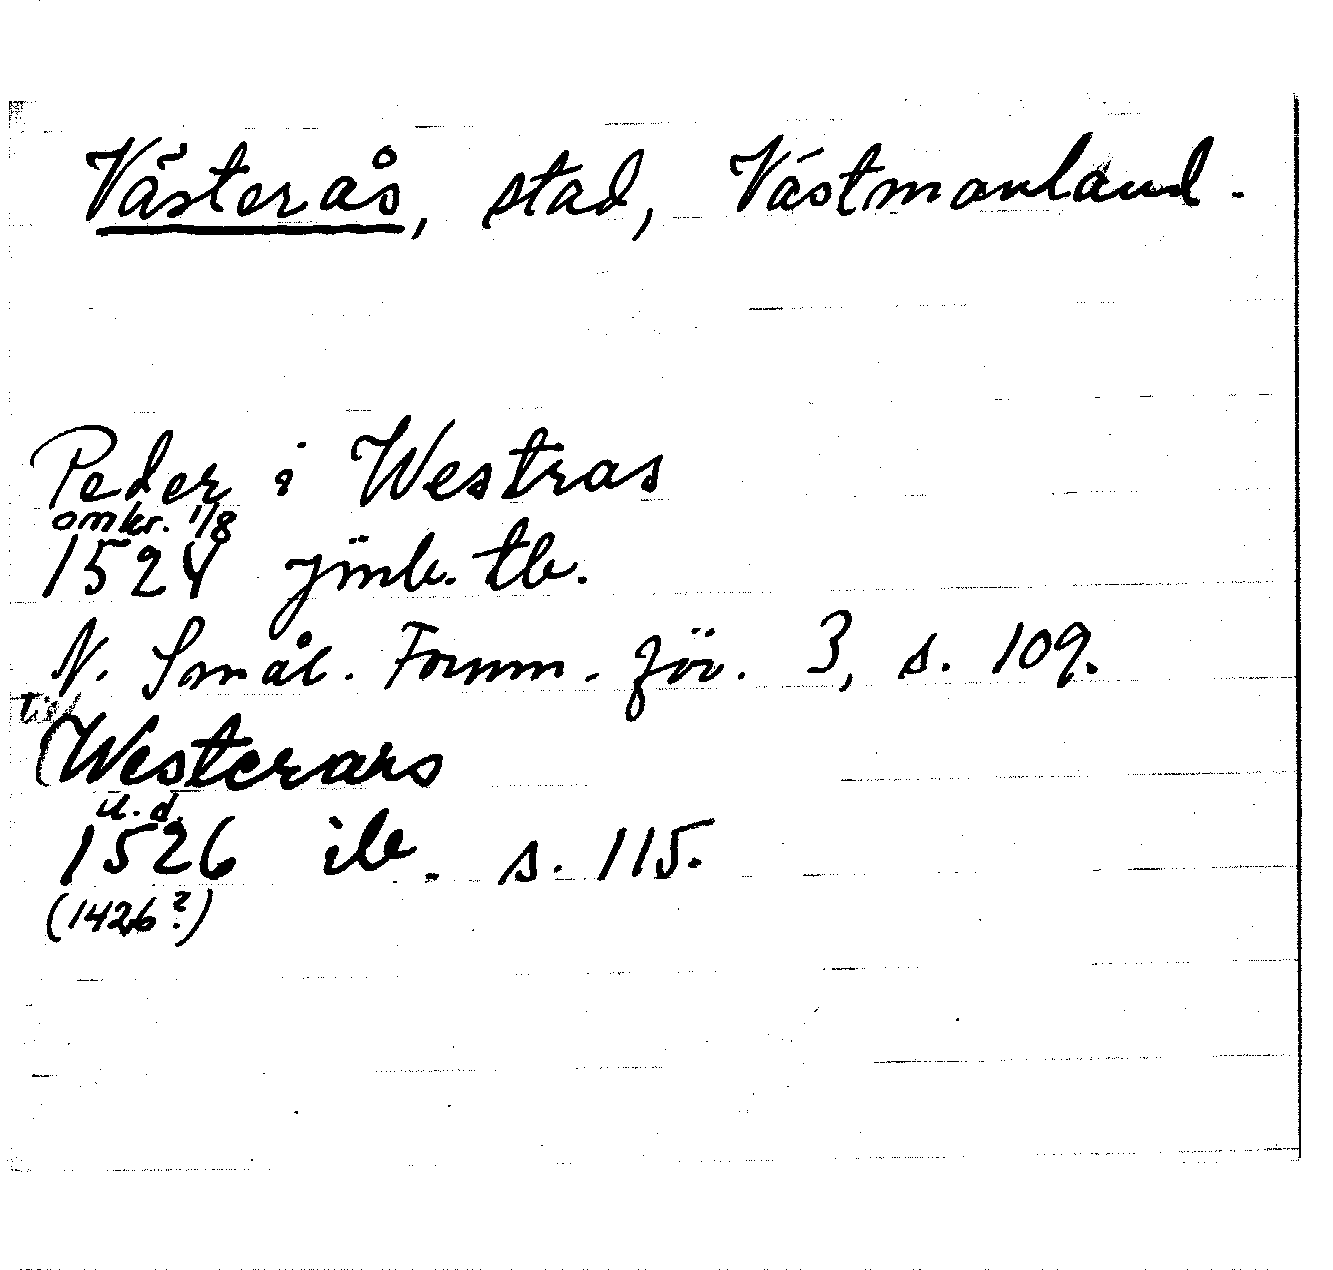 Västerås, stad, Västmanland.
Peder i Westras
omkr. 1/8
1524 jmb. tb.
N. Smål. Fornm. för. 3, s. 109.
till
(Westerars
u. d.
1526 ib. s. 115.
(1426?)